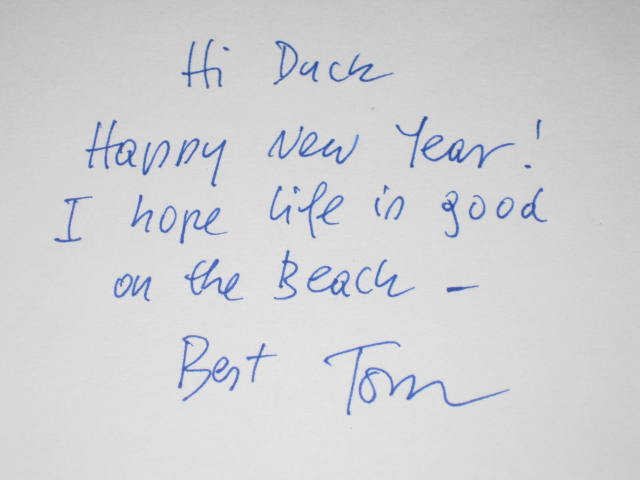 Hi Duck
Happy New Year!
I hope life is good
on the Beach -
Best Tom